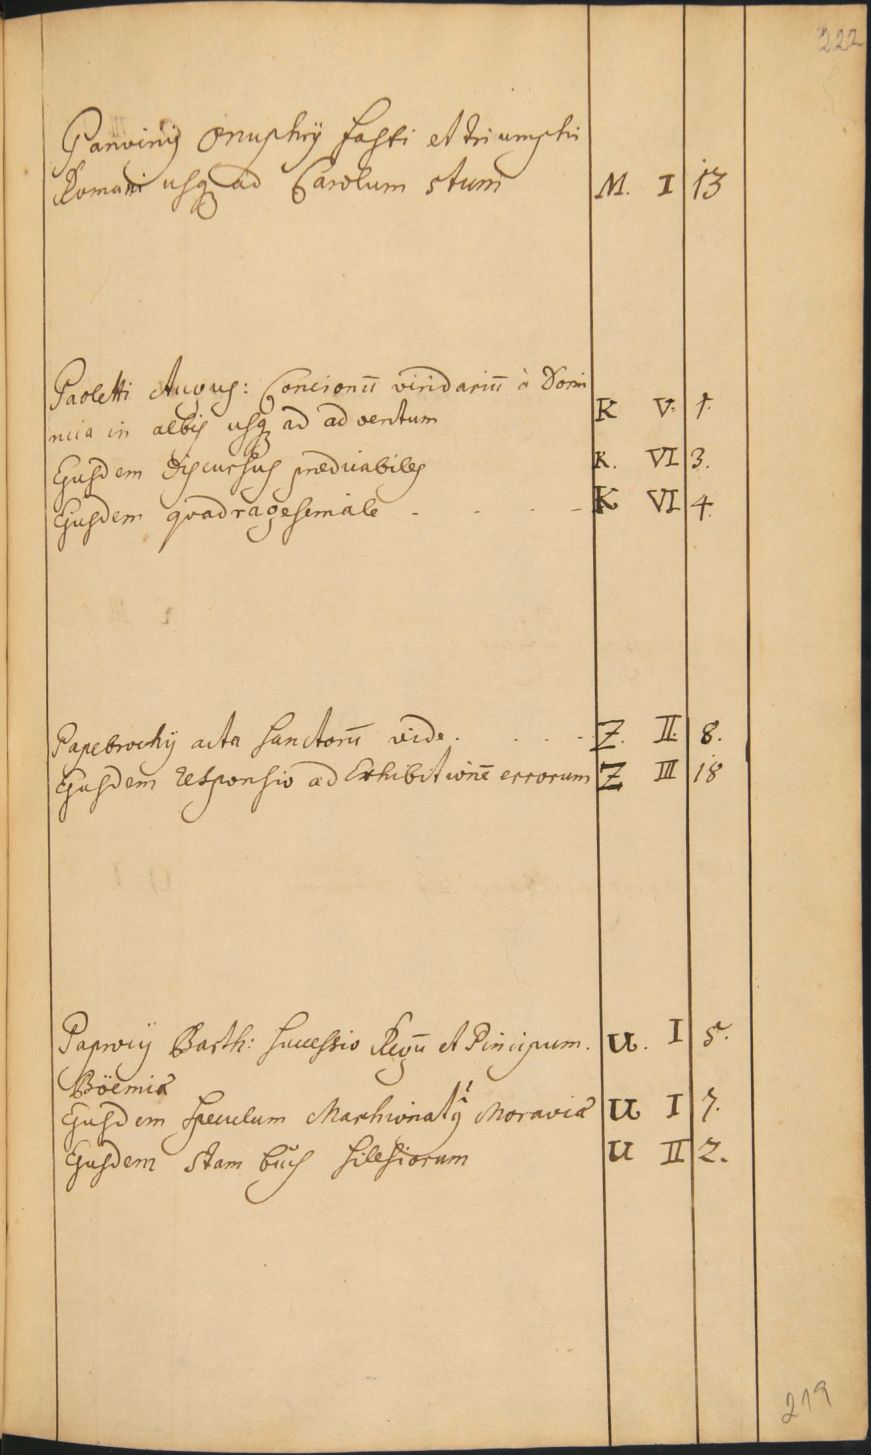 222
Panvinij Onuphrij fasti et triumphi
Romani usq ad Carolum 5tum M. I 13
Paoletti Augus: Concionū viridariū à Domi
nica in albis usq ad adventum K V. 1.
Ejusdem Discursus prædicabiles K. VI 3.
Ejusdem quadragesimale . . . - K VI 4.
Papebrochij acta Sanctorū vide . . . . - Z. II. 8.
Ejusdem responsio ad Exhibitionē errorum Z III 18
Paprocij Barth: successio Regū et Principum. U. I 5.
Böemiæ
Ejusdem speculum Marchionatus Moraviæ U I 7.
Ejusdem Stam buch silesiorum U II 2.
219